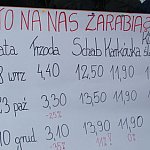 TO NA NAS ZARABIA
ata Trzoda Schab Karkówka
8 wrz 4,40 12,50 11,90
3 paź 3,30 13,50 11,90
-25%
10 grud 3,10 13,90 11,90
-35% 11% 0%